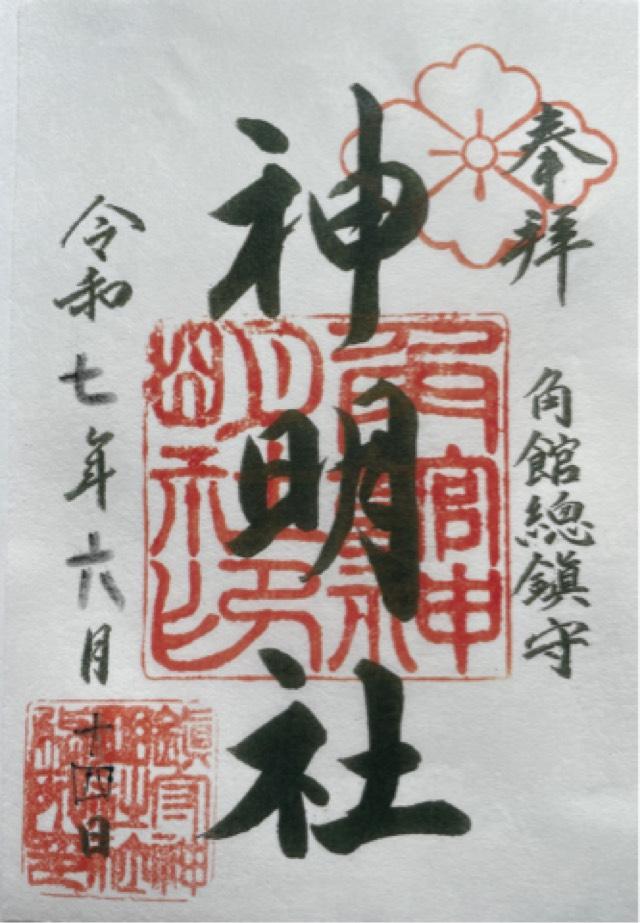 奉拜
角館總鎮守
神明社
令和七年六月
十四日